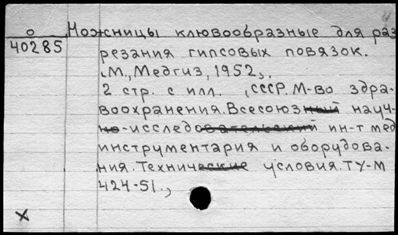 О Ножницы клювообразные для раз
40285 резания гипсовых повязок.
М., Медгиз, 1952.
2 стр. с илл. (СССР. М-во здра-
воохранения. Всесоюзный науч-
но-исследовательский ин-т мед
инструментария и оборудова-
ния. Технические условия. ТУ-М
424-51.)
X